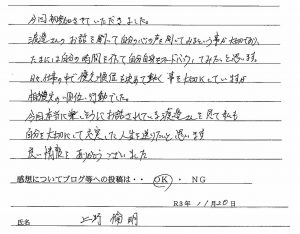 今回初参加させていただきました。
渡邉さんのお話を聞いて自分の心の声を聞いてみるという事が大切であり、
たまには自分の時間を作って自分自身をアップデートしてみたいと思います。
日々仕事の中で優先順位を決めて動く事を大切にしていますが
相手の一個上、行動でした。
今回本当に楽しそうにお話されている渡邉さんを見て私も
自分を大切にして充実した人生を送りたいと思います
良い情報を ありがとうございました
感想についてブログ等への投稿は・・ OK ・ NG
R3年 11月20日
氏名 上野 倫明